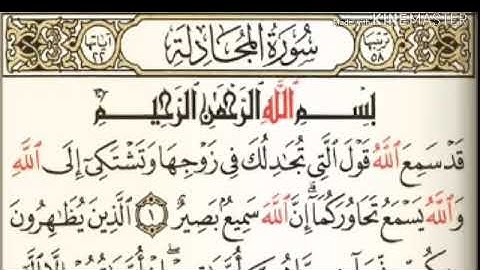 Made with KINEMASTER
آياتها ٢٢ سُورَةُ المُجَادلَة ترتيبها ٥٨
بِسْمِ ٱللَّهِ ٱلرَّحْمَٰنِ ٱلرَّحِيمِ
قَدْ سَمِعَ ٱللَّهُ قَوْلَ ٱلَّتِي تُجَادِلُكَ فِي زَوْجِهَا وَتَشْتَكِيٓ إِلَى ٱللَّهِ
وَٱللَّهُ يَسْمَعُ تَحَاوُرَكُمَآ إِنَّ ٱللَّهَ سَمِيعٌۢ بَصِيرٌ ١ ٱلَّذِينَ يُظَٰهِرُونَ